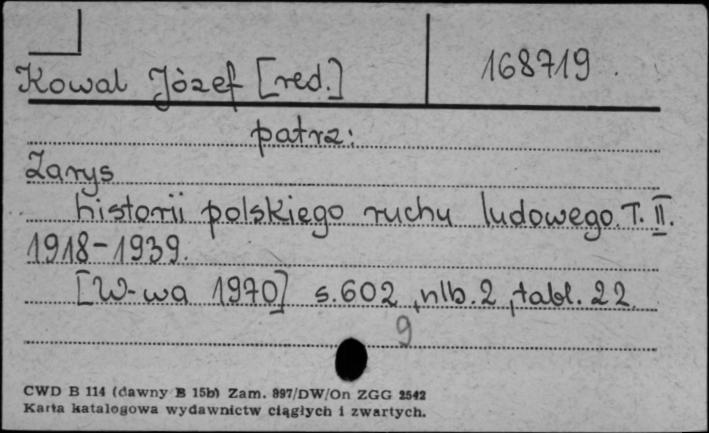 Kowal Józef [red.] 168719.
patrz:
Zarys
historii polskiego ruchu ludowego. T. II.
1918-1939.
[W-wa 1970] s. 602, nlb. 2, tabl. 22.
9
CWD B 114 (dawny B 15b) Zam. 897/DW/On ZGG 2542
Karta katalogowa wydawnictw ciągłych i zwartych.